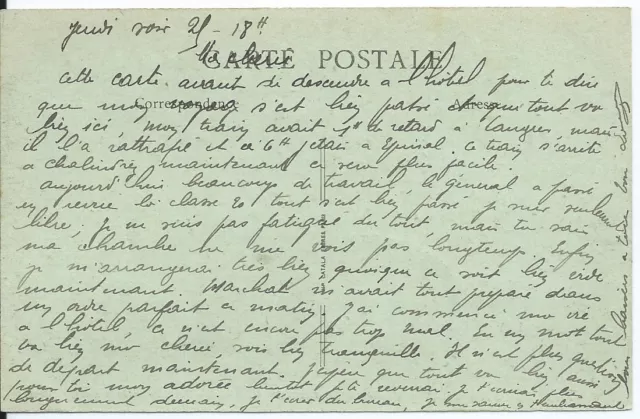 jeudi soir 21 - 18H
CARTE POSTALE
Ma chérie
cette carte avant de descendre à l'hôtel pour te dire
Correspondance
Adresse
que mon voyage s'est bien passé et que tout va
bien ici, mon train avait 1H de retard à Langres, mais
il l'a rattrapé et à 6H j'étais à Epinal. Ce train s'arrête
à chalindrey maintenant ce sera plus facile.
aujourd'hui beaucoup de travail, le général a passé
en revue la classe 20 tout s'est bien passé je suis seulement
libre, je ne suis pas fatigué du tout, mais tu sais
ma chambre ne me vois pas longtemps. Enfin
je m'arrangerai très bien quoique ce soit bien vide
maintenant. Marchal m'avait tout préparé dans
un ordre parfait ce matin. J'ai commencé ma vie
à l'hôtel, ce n'est encore pas trop mal. En un mot tout
va bien ma chérie, sois bien tranquille. Il n'est plus question
de départ maintenant. J'espère que tout va bien aussi
pour toi mon adorée bientôt je te reverrai. Je t'écrirai plus
longuement demain, je t'écris du bureau, je
baisers à toi ton